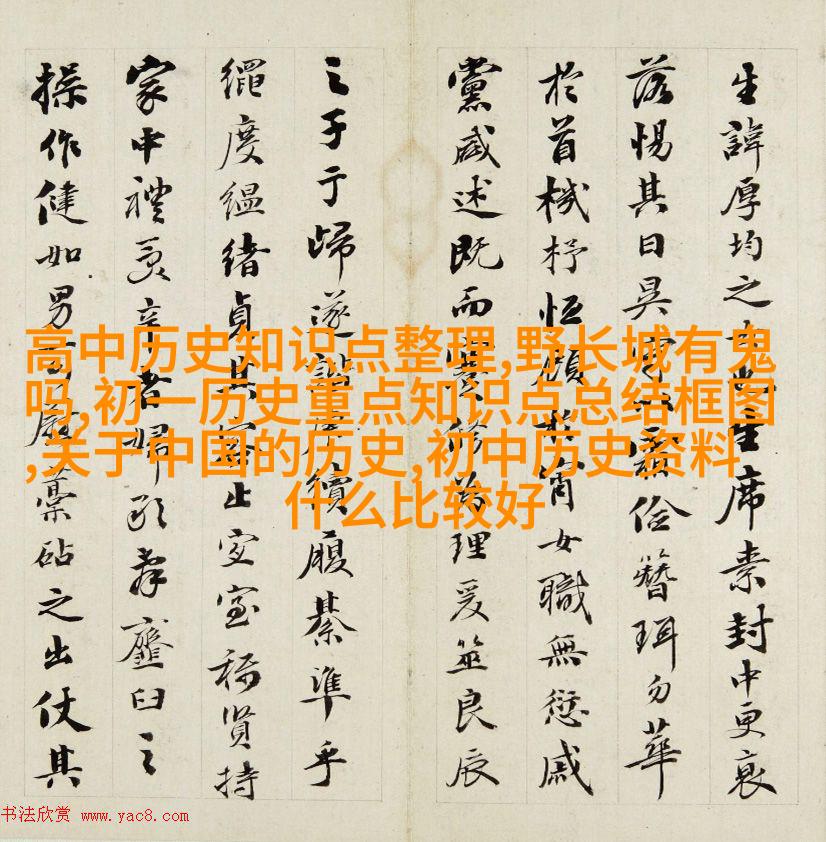 生諱厚均之也生席素封中更衰
落惕其日昃儉簪珥勿華
於首機杼恒於宵女職無愆戚
黨咸述既而修理爰筮良辰
之子于歸遂續履綦準乎
繩度縕緒貞其止室穆賓持
家中禮辛婦孝齏臼之
操作健如男藁砧之出仗其
高中历史知识点整理,野长城有鬼
吗,初一历史重点知识点总结框图
,关于中国的历史,初中历史资料
什么比较好
书法欣赏 www.yac8.com